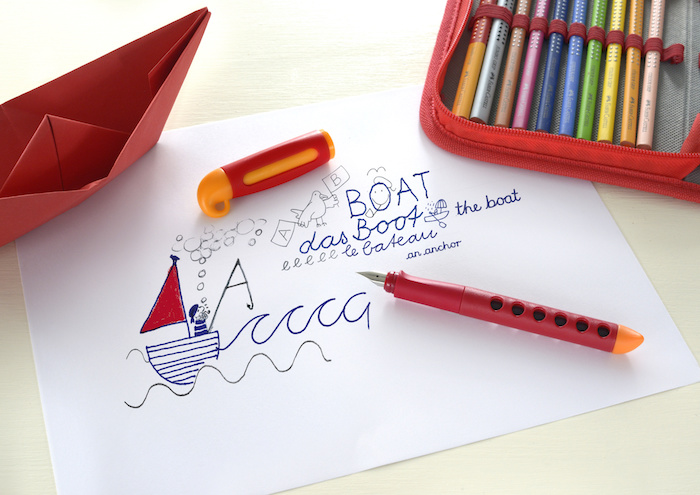 B
A
BOAT
das Boot
the boat
eeeee le bateau
an anchor
A